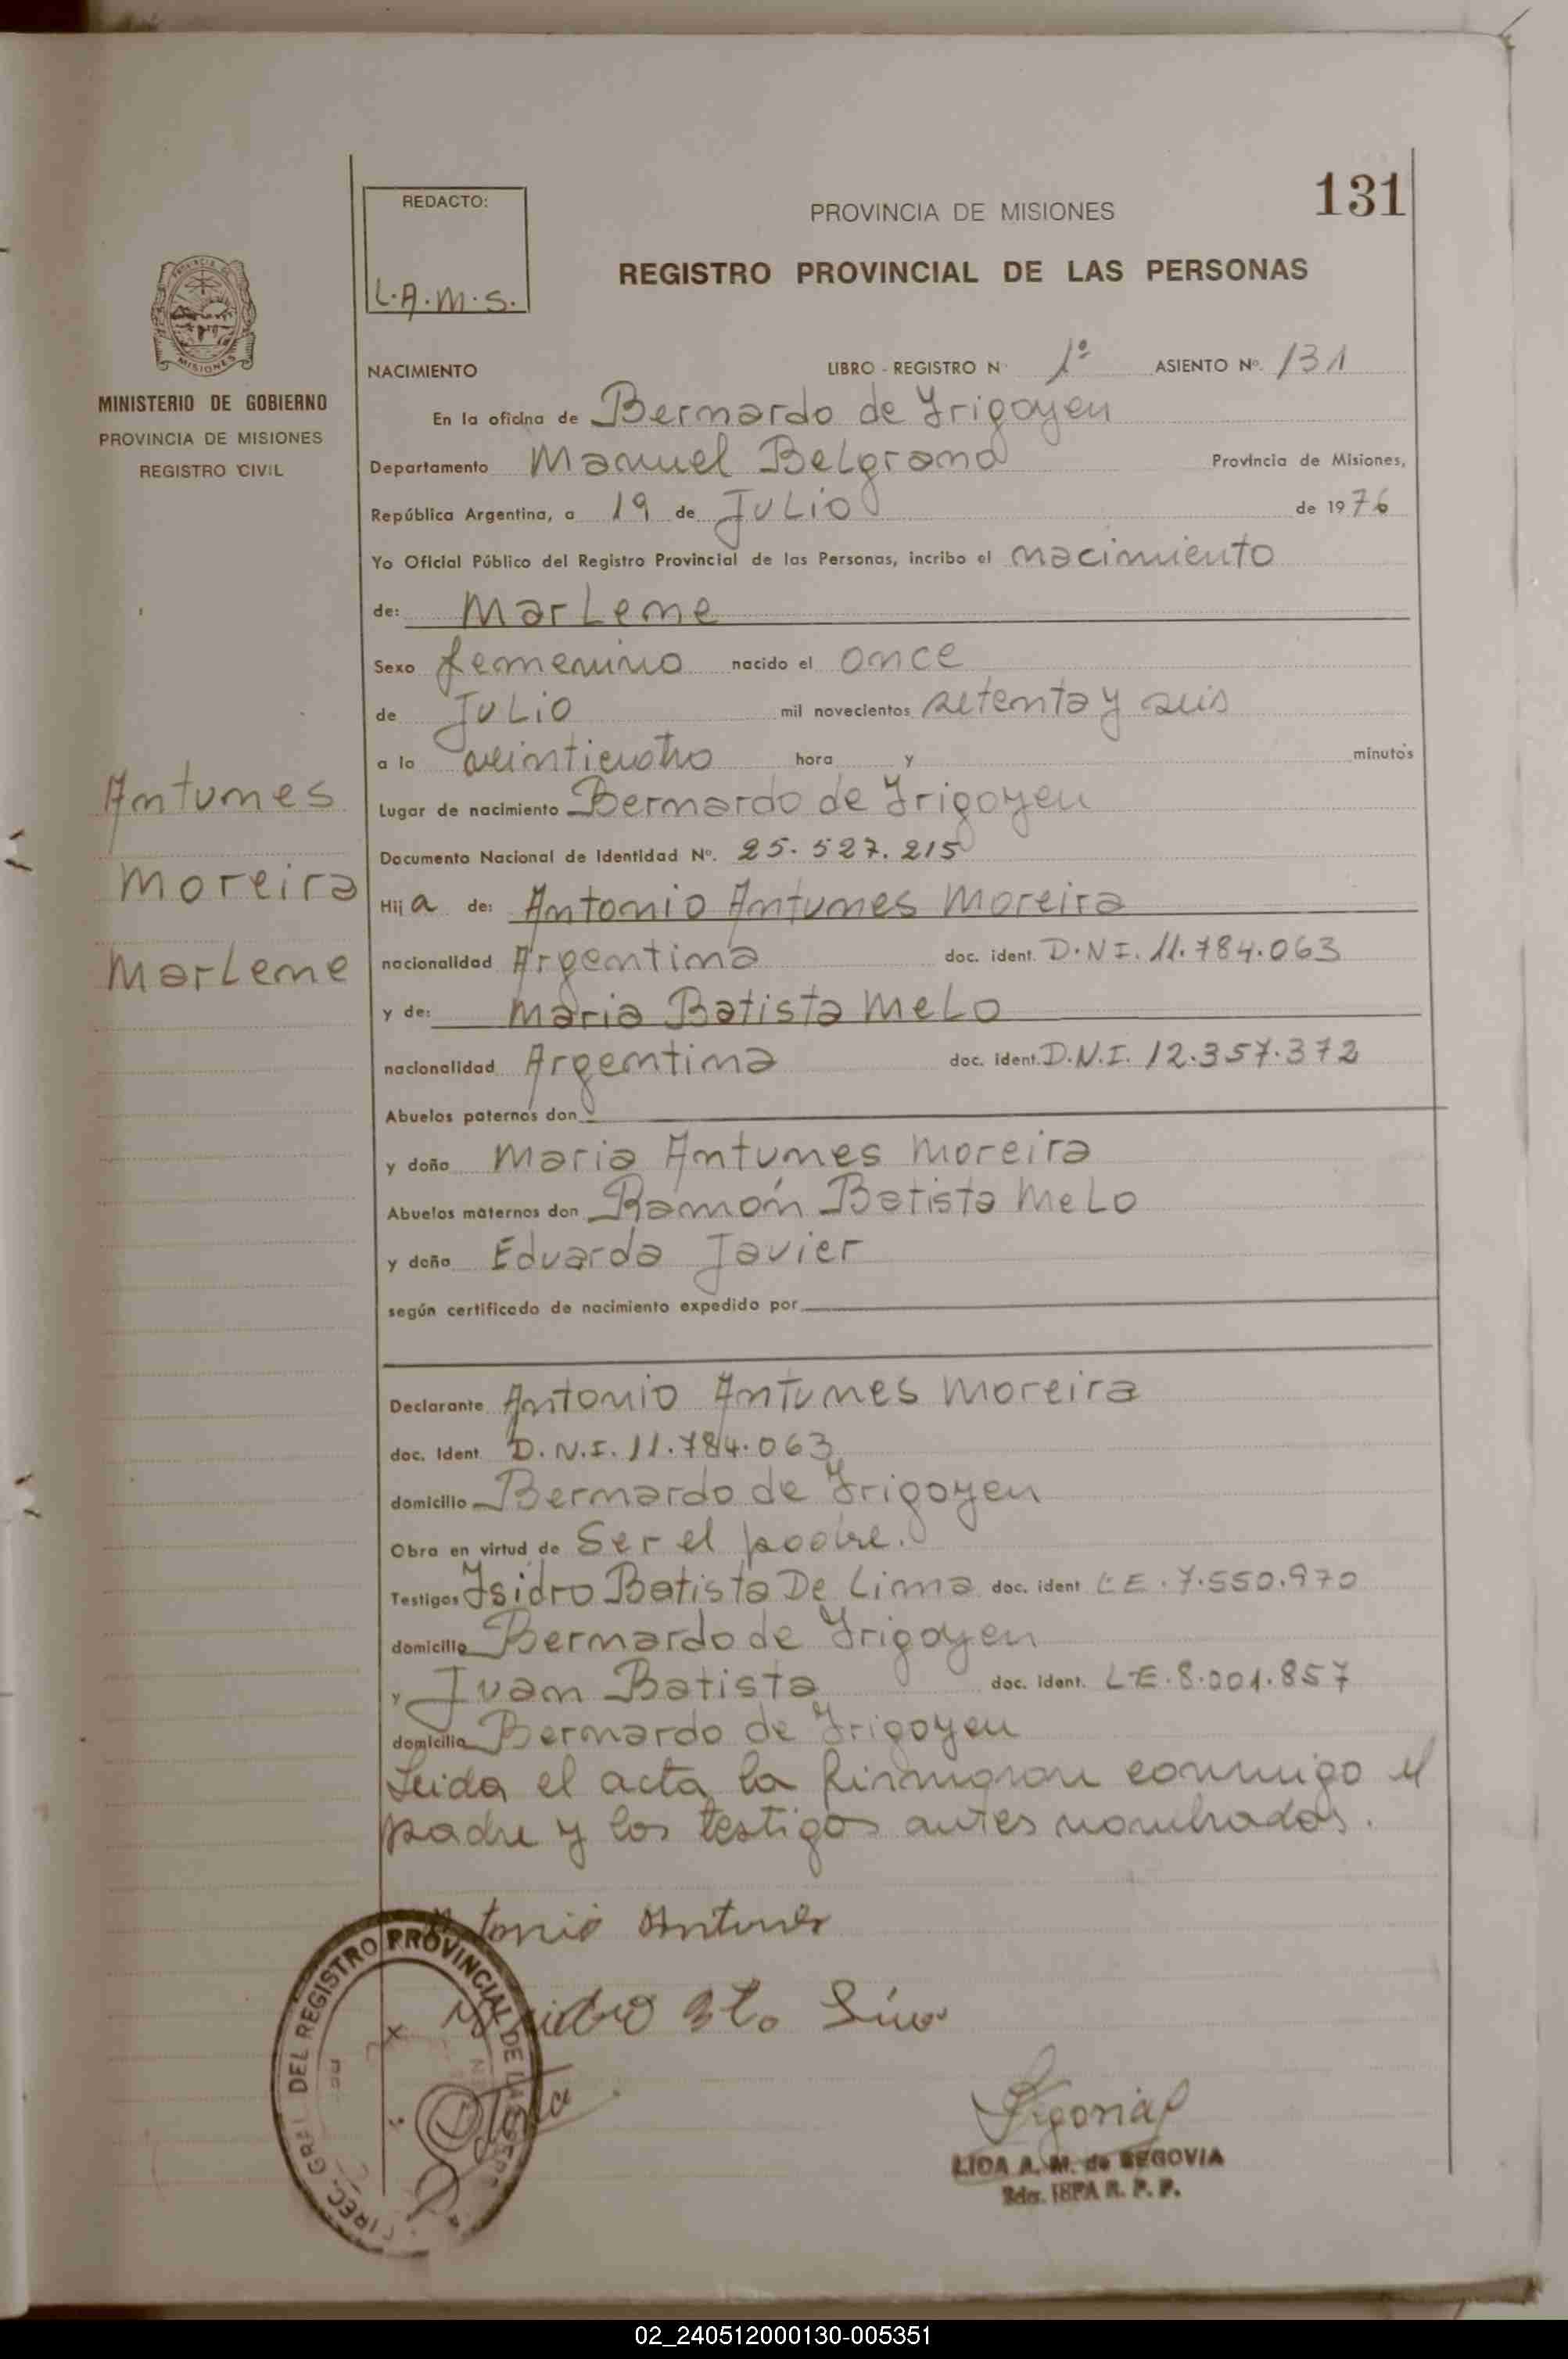 131
REDACTO:
L.A.M.S.
PROVINCIA DE MISIONES
REGISTRO PROVINCIAL DE LAS PERSONAS
MISIONES
MINISTERIO DE GOBIERNO
PROVINCIA DE MISIONES
REGISTRO CIVIL
NACIMIENTO LIBRO - REGISTRO N 1º ASIENTO Nº. 131
En la oficina de Bernardo de Yrigoyen
Departamento Manuel Belgrano Provincia de Misiones,
República Argentina, a 19 de Julio de 1976
Yo Oficial Público del Registro Provincial de las Personas, incribo el nacimiento
de: Marlene
Sexo femenino nacido el once
de Julio mil novecientos setenta y seis
a la veinticuatro hora y minutos
Lugar de nacimiento Bernardo de Yrigoyen
Documento Nacional de Identidad Nº. 25.527.215
Hija de: Antonio Antunes Moreira
nacionalidad Argentina doc. ident. D.N.I. 11.784.063
y de: Maria Batista Melo
nacionalidad Argentina doc. ident. D.N.I. 12.357.372
Abuelos paternos don
y doña Maria Antunes Moreira
Abuelos maternos don Ramón Batista Melo
y doña Eduarda Javier
según certificado de nacimiento expedido por
Antunes
Moreira
Marlene
Declarante Antonio Antunes Moreira
doc. Ident. D.N.I. 11.784.063
domicilio Bernardo de Yrigoyen
Obra en virtud de Ser el padre.
Testigos Isidro Batista De Lima doc. ident L.E. 7.550.970
domicilio Bernardo de Yrigoyen
y Juan Batista doc. ident. L.E. 8.001.857
domicilio Bernardo de Yrigoyen
Leida el acta la firmaron conmigo el
padre y los testigos antes nombrados.
Antonio Antunes
DIREC. GRAL. DEL REGISTRO PROVINCIAL DE LAS PERS
LIDA A. M. de SEGOVIA
R. P. P.
02_240512000130-005351